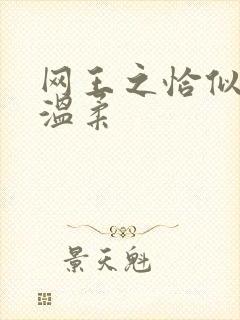 网王之恰似
温柔
景天魁